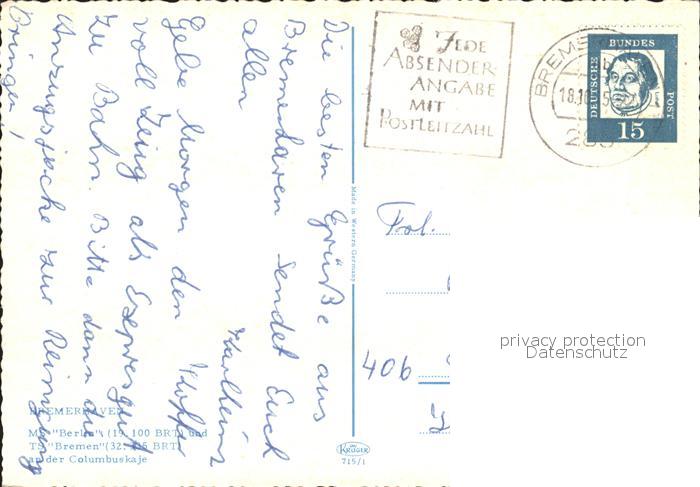 Die besten Grüße aus
Bremerhaven sendet Euch
allen
Karlheinz
Gebe Morgen den Koffer
voll Zeug als Expressgut
zu Bahn. Bitte dann die
Anzugsjacke zur Reinigung
bringen!
BREMERHAVEN
MS "Berlin" (19 100 BRT) und
TS "Bremen" (32 BRT)
an der Columbuskaje
Made in Western Germany
KRÜGER
715/1
JEDE
ABSENDER-
ANGABE
MIT
POSTLEITZAHL
BREM
18.10.
DEUTSCHE BUNDESPOST
15
406
privacy protection
Datenschutz